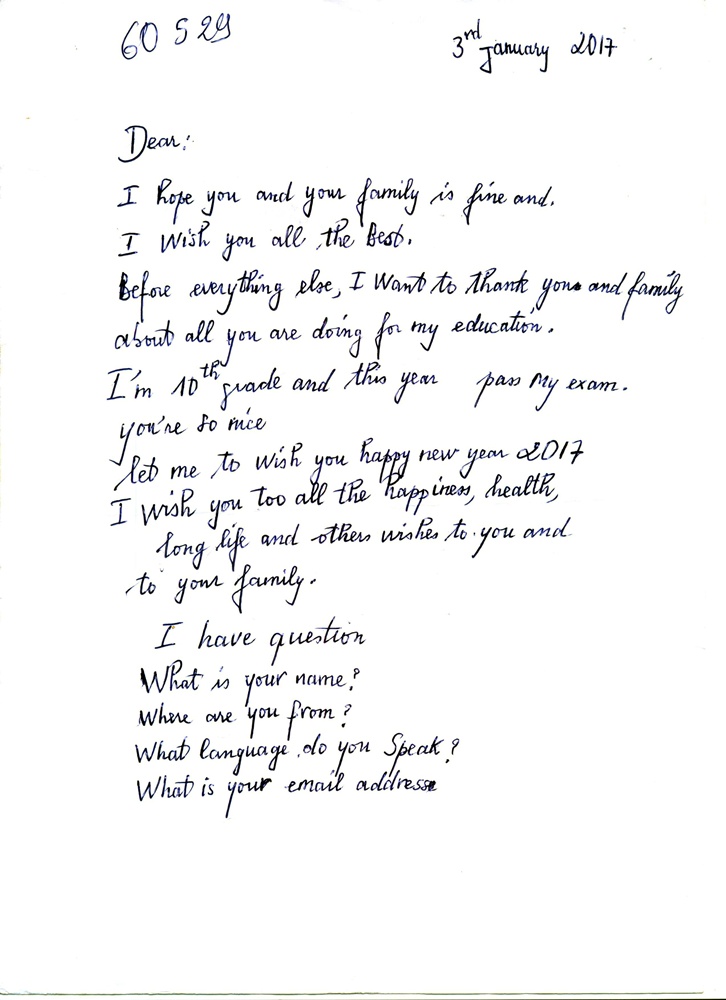 60 529
3rd January 2017
Dear:
I hope you and your family is fine and.
I Wish you all the Best.
Before everything else, I Want to thank you and family
about all you are doing for my education.
I'm 10th grade and this year pass My exam.
you're so nice
let me to wish you happy new year 2017
I wish you too all the happiness, health,
long life and others wishes to you and
to your family.
I have question
What is your name?
Where are you from?
What language do you Speak?
What is your email address